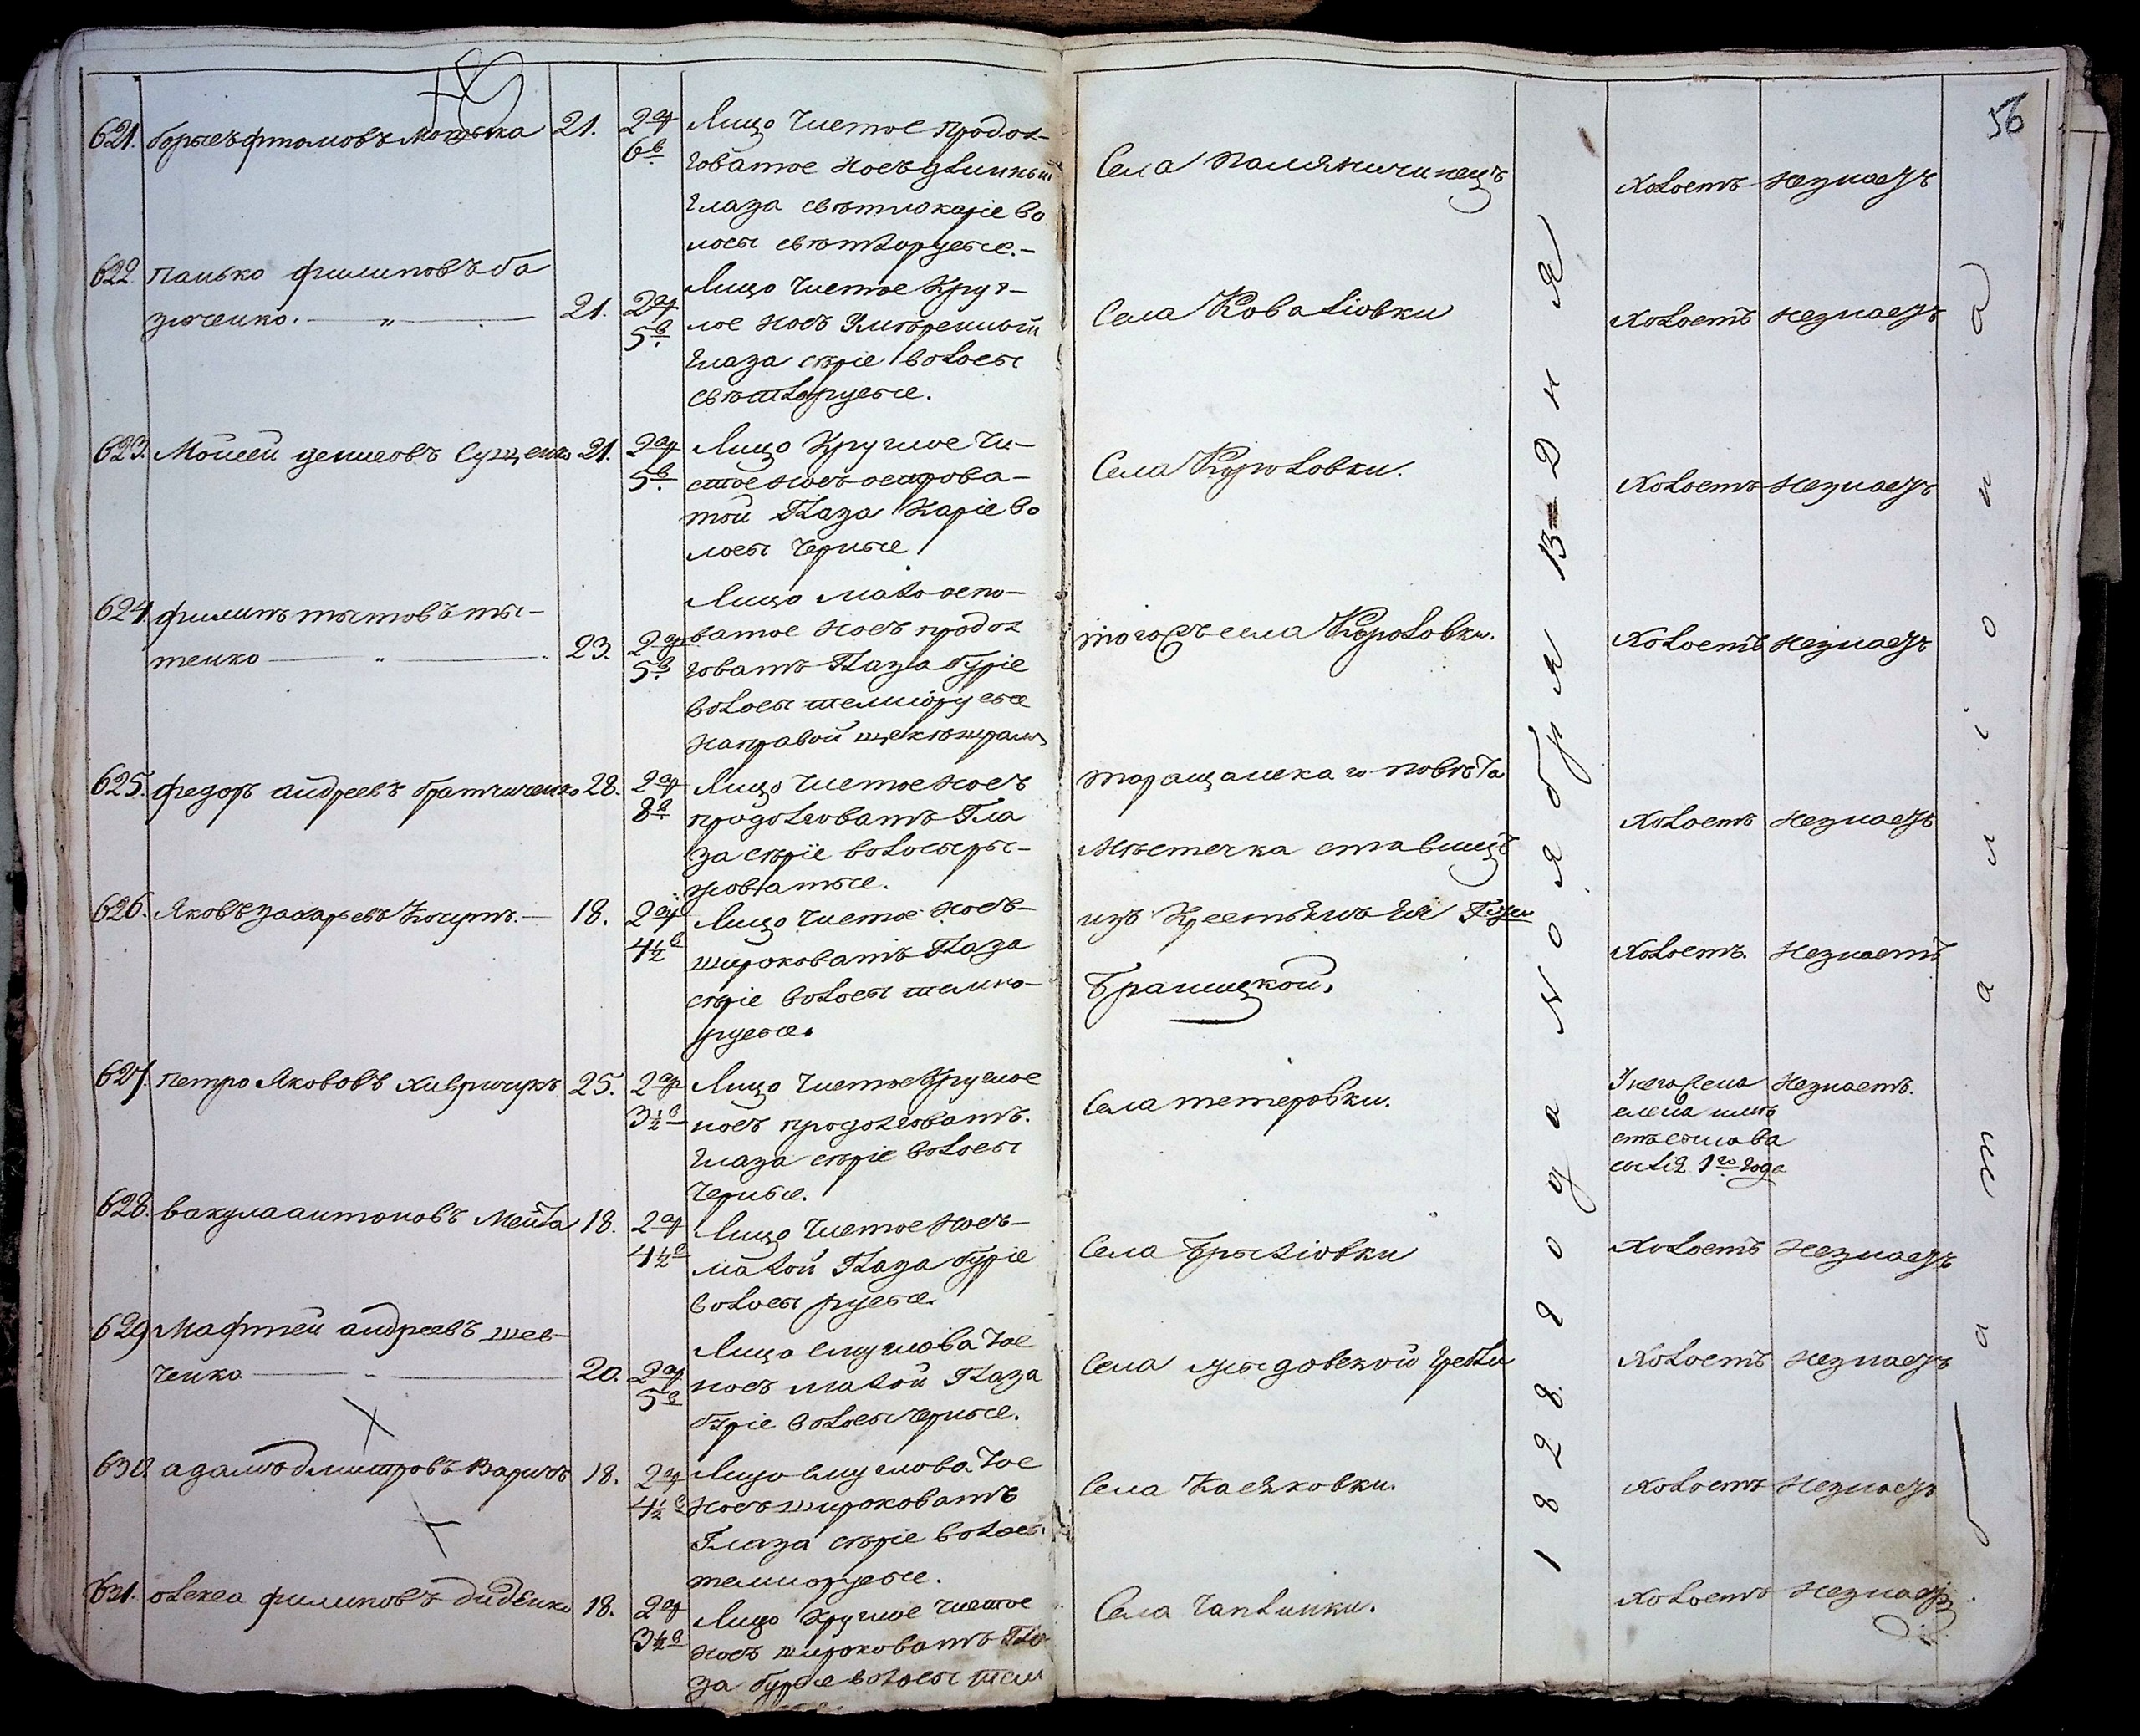 56
621. борисъ фтомовъ Мотыка 21. 2 ар 6 в
Лицо чистое продол-
говатое носъ длинный
глаза свѣтлокаріе во
лосы свѣтлорусые.-
Села Паляничинецъ
холостъ незнаетъ
622. панько филиповъ ба
зюченко. — „ — 21. 2 ар 5 в
Лицо чистое Круг-
лое носъ Умѣренный
глаза сѣріе волосы
свѣтлорусые.
Села Коваліовки
холостъ незнаетъ
623. Мойсей денисовъ Сущенко 21. 2 ар 5 в
Лицо Круглое Чи-
стое носъ острова-
той Глаза Каріе во
лосы Черные
Села Королювки.
холостъ незнаетъ
624. филипъ тытовъ ты-
тенко — „ — 23. 2 ар 5 в
Лицо мало оспо-
ватое носъ продол
говатъ Глаза буріе
волосы темнорусые
направой щекѣ шрамъ
тогожъ села Королювки.
холостъ незнаетъ
625. федоръ андреевъ братчиченко 28. 2 ар 8 в
Лицо чистое носъ
продолговатъ Гла
за сѣріе волосы ры-
жоватые.
таращанскаго повѣта
Мѣстечка ставищъ
холостъ незнаетъ
626. Яковъ захарьевъ Кощутъ.— 18. 2 ар 4½ в
Лицо чистое носъ-
широковатъ Глаза
сѣріе волосы темно-
русые.
изъ Крестьянъ Ея
Браницкой,
холостъ. незнаетъ
627. петро Якововъ хивричукъ 25. 2 ар 3½ в
Лицо чистое Круглое
носъ продолговатъ.
глаза сѣріе волосы
Черные.
Села тетеровки.
У него жена
елена
сына
1 го года
незнаетъ.
628. вакула антоновъ Мейта 18. 2 ар 4½ в
Лицо чистое носъ-
малой Глаза буріе
волосы русые.
Села Брыліовки
холостъ незнаетъ
629 Мафтей андреевъ шев-
ченко — „ — 20. 2 ар 5 в
Лицо смугловатое
носъ малой Глаза
буріе волосы черные.
Села жыдовской гребли
холостъ незнаетъ
630. адамъ дмитровъ Варичъ 18. 2 ар 4½ в
Лицо смугловатое
носъ широковатъ
Глаза сѣріе волосы
темнорусые.
Села Касяковки.
холостъ незнаетъ
631. олекса филиповъ диденко 18. 2 ар 3½ в
Лицо Круглое чистое
носъ широковатъ Гла
за буріе волосы тем
Села Чаплинки.
холостъ незнаетъ
1828 года ноября 13 Дня
баталіона